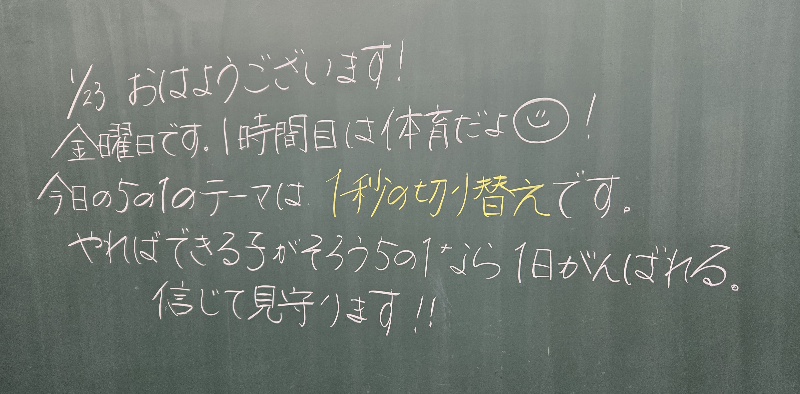 1/23 おはようございます!
金曜日です。1時間目は体育だよ☺!
今日の5の1のテーマは 1秒の切り替えです。
やればできる子がそろう5の1なら1日がんばれる。
信じて見守ります!!